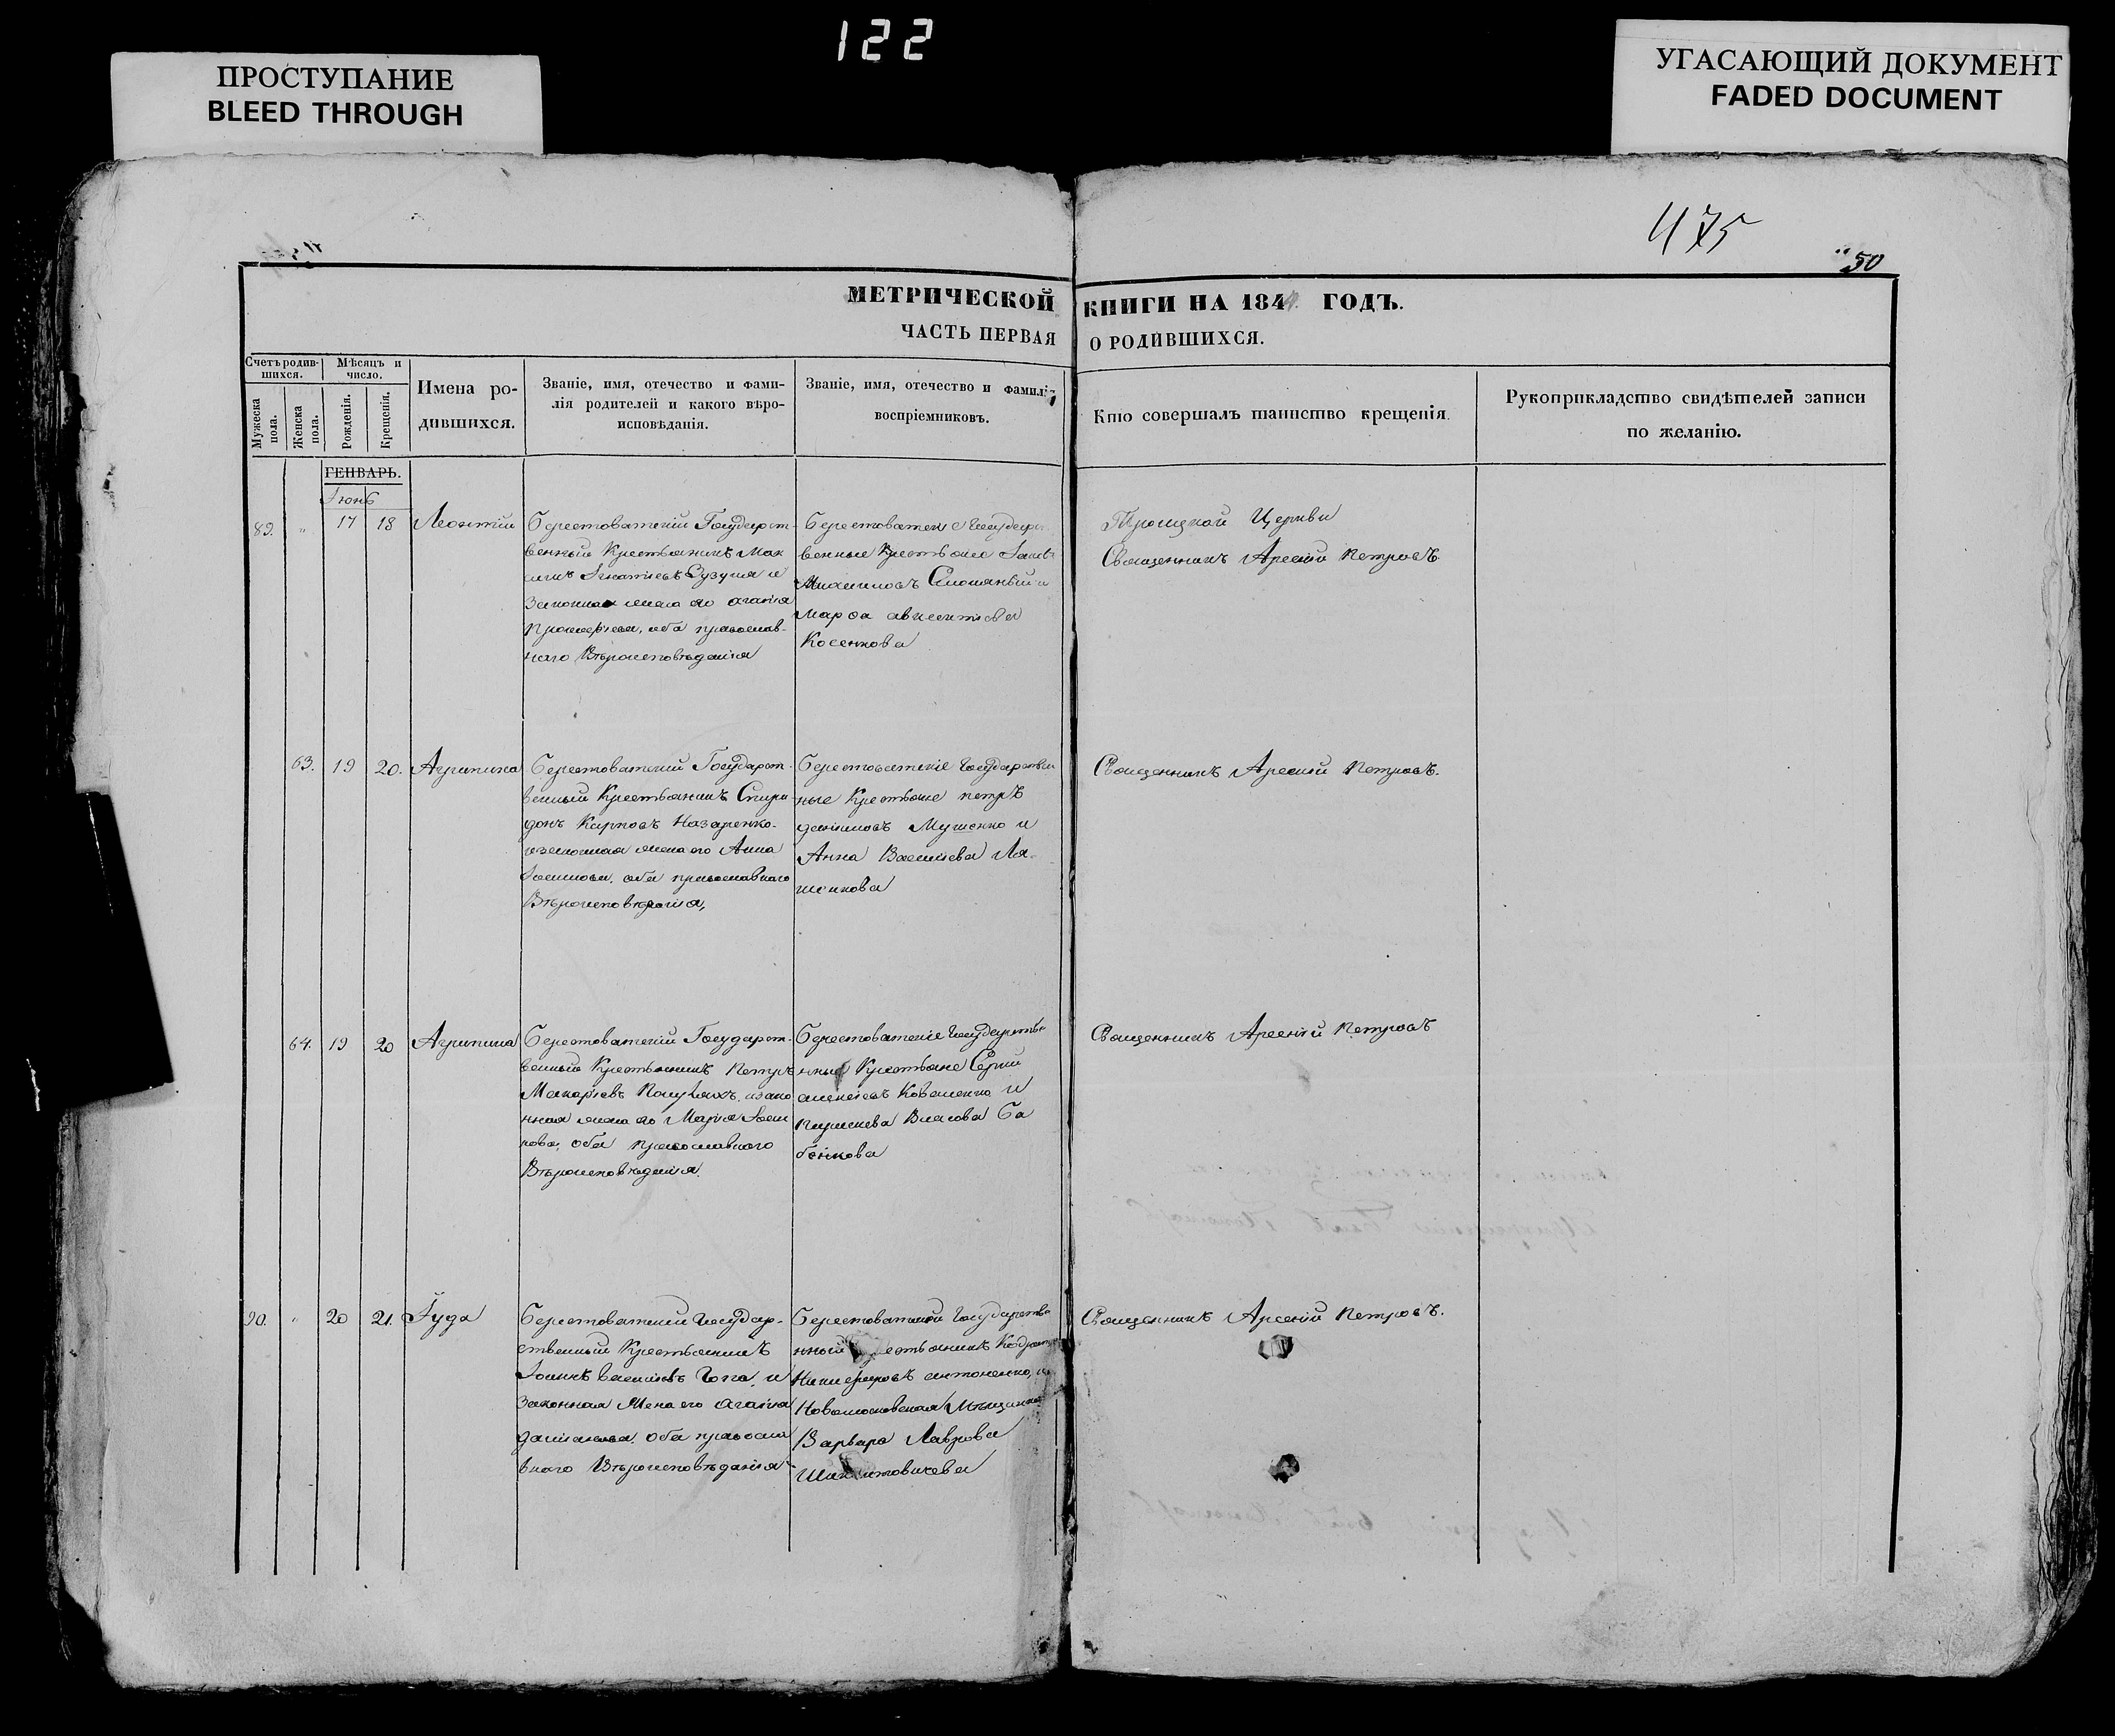 122
ПРОСТУПАНИЕ
BLEED THROUGH
УГАСАЮЩИЙ ДОКУМЕНТ
FADED DOCUMENT
475
50
МЕТРИЧЕСКОЙ КНИГИ НА 1844 ГОДЪ.
ЧАСТЬ ПЕРВАЯ О РОДИВШИХСЯ.
Счетъ родив-
шихся.
Мѣсяцъ и
число.
Мужеска
пола.
Женска
пола.
Рожденія.
Крещенія.
Имена ро-
дившихся.
Званіе, имя, отечество и фами-
лія родителей и какого вѣро-
исповѣданія.
Званіе, имя, отечество и фамилія
воспріемниковъ.
Кто совершалъ таинство крещенія.
Рукоприкладство свидѣтелей записи
по желанію.
ГЕНВАРЬ.
Іюнь
89. " 17 18 Леонтій
Берестоватскій Государст-
венный Крестьянинъ Мак
симъ Игнатіевъ Зузуля и
Законная жена его Агафія
Прокофіева, оба православ-
наго Вѣроисповѣданія
Михаиловъ
Марфа Авксентіева
Косенкова
Троицкой Церкви
Священникъ Арсеній Петровъ
63. 19 20. Агрипина
Берестоватскій Государст-
венный Крестьянинъ Спири-
донъ Карповъ Назаренко
изаконная жена его Анна
оба православнаго
Вѣроисповѣданія,
Берестоватскіе Государствен
ные Крестьяне петръ
даниловъ Мушенко и
Анна Василіева Ля-
шенкова
Священникъ Арсеній Петровъ.
64. 19 20 Агрипина
Берестоватскій Государст-
венный Крестьянинъ Петръ
Макаріевъ изако
нная жена его Марія
оба православнаго
Вѣроисповѣданія.
Берестоватскіе Государстве
нные Крестьяне Сергій
Коваленко и
Власова Ба
бенкова
Священникъ Арсеній Петровъ
90. " 20 21. Іуда
Берестоватскій Государ-
ственный Крестьянинъ
Іоаннъ Василіевъ и
Законная Жена его Агафія
оба правосла
внаго Вѣроисповѣданія
Берестоватской Государстве
нный Крестьянинъ
Никифоровъ антоненко, и
Новомосковская Мѣщанка
Варвара Лаврова
Священникъ Арсеній Петровъ.